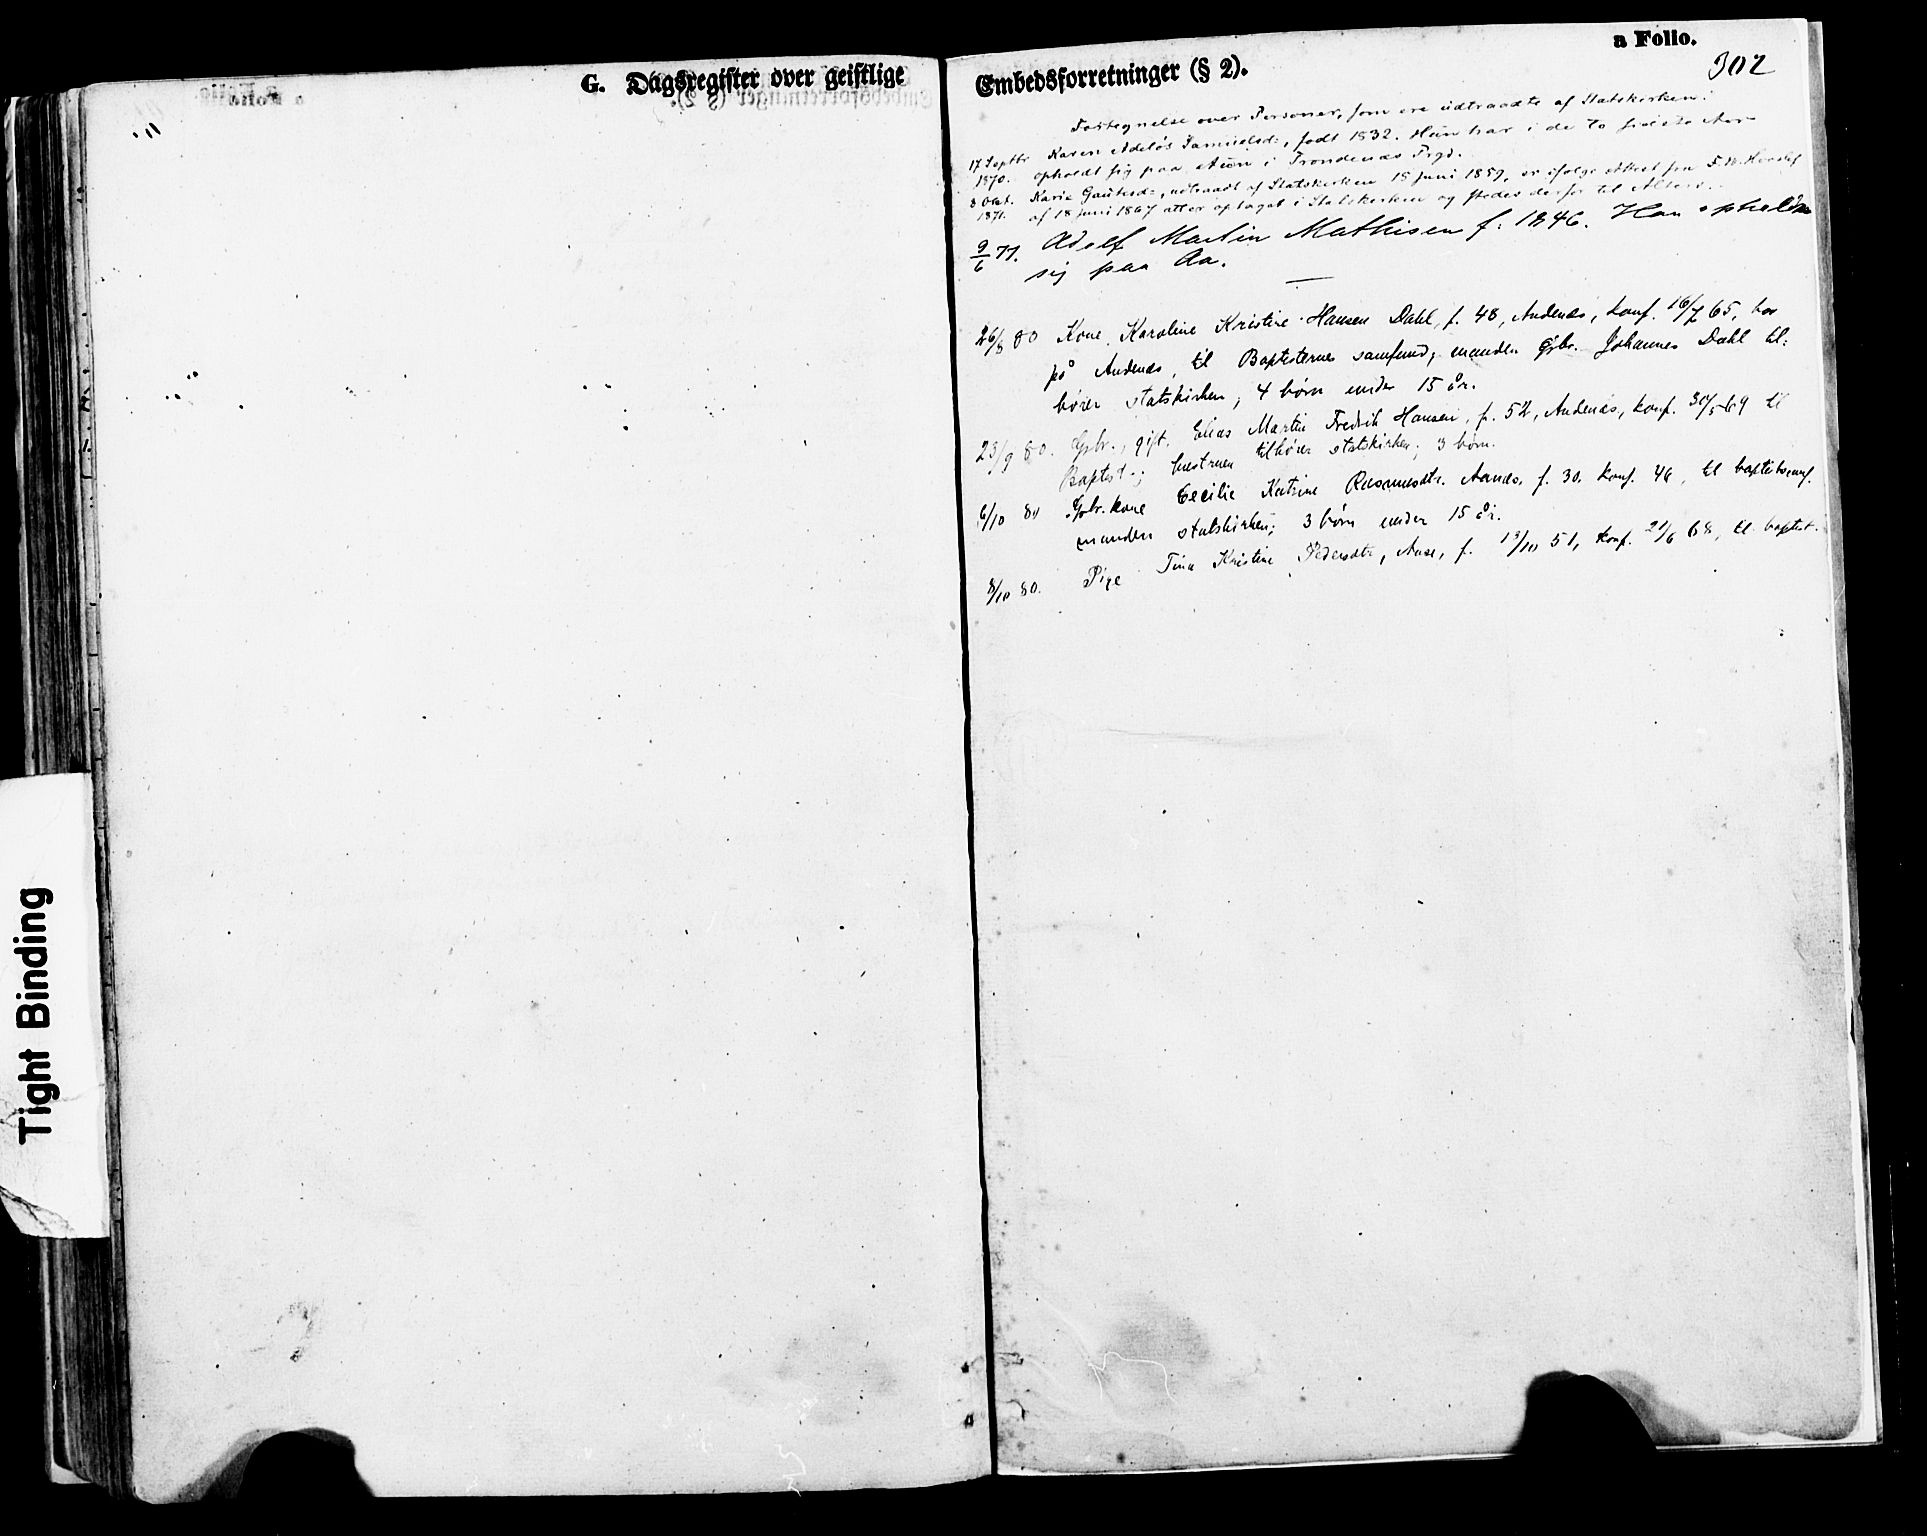 G. Dagsregister over geistlige
Embedsforretninger (§ 2).
a Folio.
302
Fortegnelse over Personer, som ere udtraadte af Statskirken:
17 Septbr 1870. Karen Adelös Samuelsd:, født 1832. Hun har i de to sidste Aar
opholdt sig paa Aun i Trondenæs Prgd.
8 Okt. 1871. Karie Gautesd:, udtraadt af Statskirken 18 Juni 1859, er ifølge Attest fra
af 18 Juni 1867 atter optaget i Statskirken og stedes derfor til Alters.
9/6 77. Adolf Martin Mathisen f: 1846. Han opholder
sig paa Aa.
26/8 80 Kone Karoline Kristine Hansen Dahl, f. 48, Andenæs, konf. 16/7 65, bor
på Andenæs, til Baptisternes samfund; manden Gbr. Johannes Dahl til-
hører statskirken; 4 børn under 15 år.
23/9 80. Gbr., gift, Elias Martin Fredrik Hansen, f. 52, Andenæs, konf. 30/5 69 til
Baptist-; hustruen tilhører statskirken; 3 børn.
6/10 80 Gbr. kone Cecilie Katrine Rasmusdtr. Aanes, f. 30. konf. 46, til baptistsamf.
manden statskirken; 3 børn under 15 år.
8/10 80. Pige Tina Kristine Pedersdtr, Aase, f. 13/10 51, konf. 21/6 68, til baptist.
Tight Binding